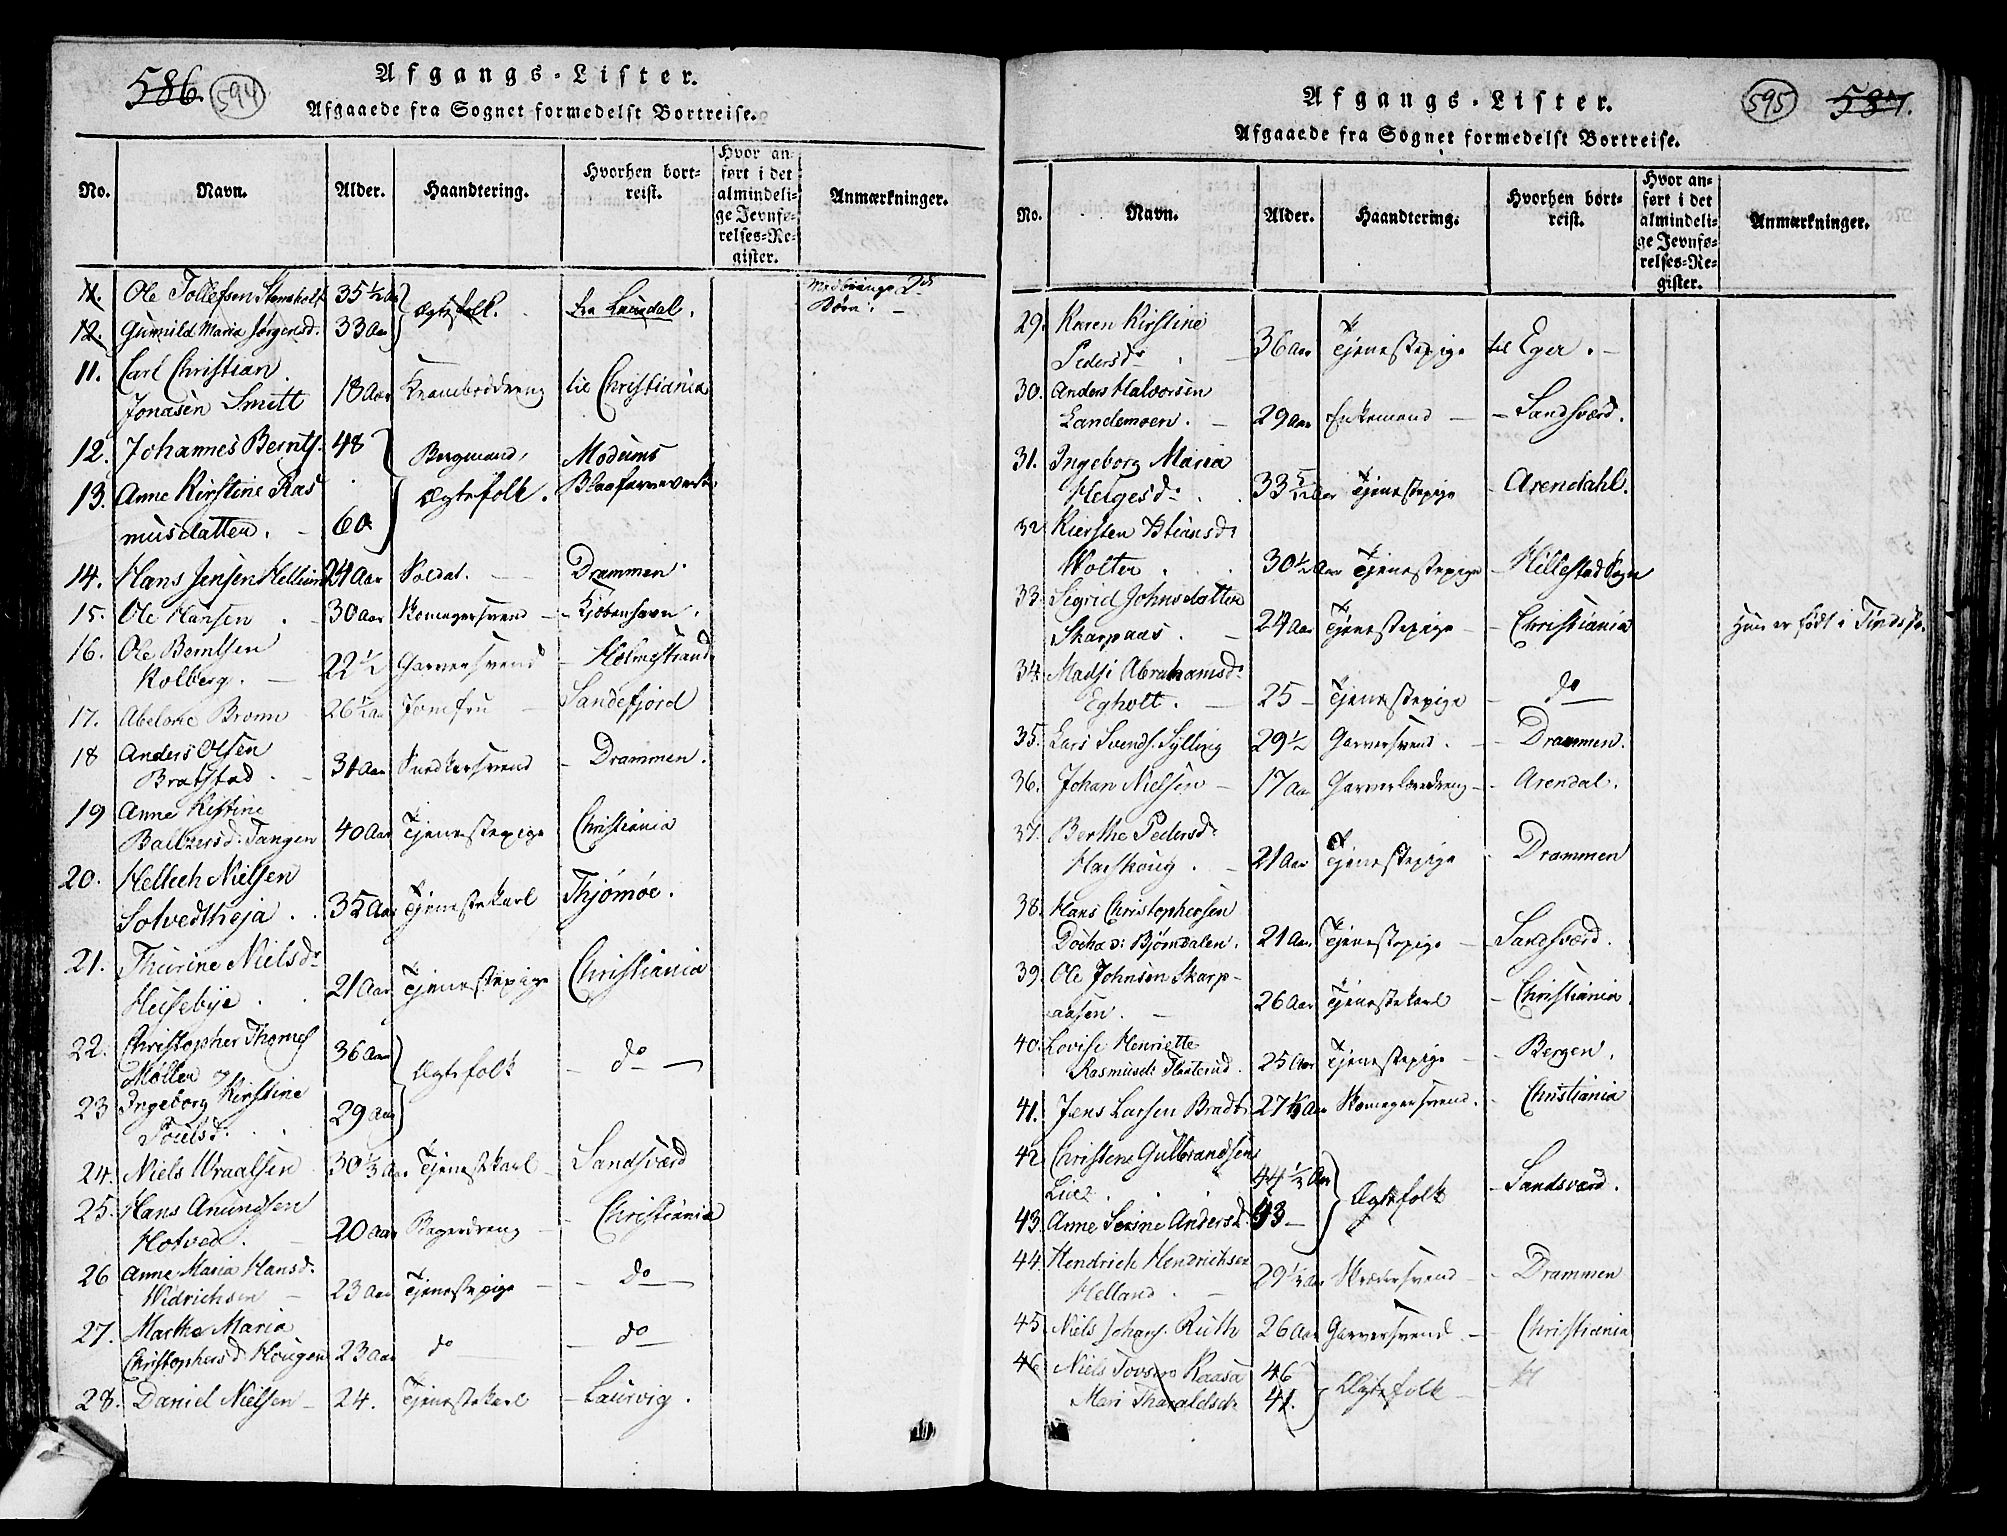 586. 594
Afgangs-Lister.
Afgaaede fra Sognet formedelst Bortreise.
No. Navn. Alder. Haandtering. Hvorhen bortreist. Hvor anført i det almindelige Jevnførelses-Register. Anmærkninger.
11. Ole Tollefsen 35 1/2 Aar Ægtefolk. fra Laurdal. Medbringe 2de
12. Gunnild Maria Jørgensd. 33 Aar Børn.
11. Carl Christian
Jonasen Smitt 18 Aar Krambøddreng til Christiania
12. Johannes Bernts. 48 Bergmand, Modums
13. Anne Kirstine Ras Ægtefolk. Blaafarveverk
musdatter. 60
14. Hans Jensen Hellum 24 Aar Soldat. Drammen
15. Ole Hansen 30 Aar Skomagersvend Kjøbenhavn.
16. Ole Berntsen
Kolberg. 22 1/2 Garversvend Holmestrand
17. Abelone Bronn 26 1/2 Aar Jomfru Sandefjord
18 Anders Olsen
Bratstad 31 Aar Snedkersvend Drammen.
19 Anne Kistine
Baltzersd. Tangen 40 Aar Tjenestepige Christiania
20. Hellech Nielsen
Solvedtheja 35 Aar Tjenestekarl Thjømøe.
21. Thurine Nielsdr
Huseby̋e 21 Aar Tjenestepige Christiania
22. Christopher Thomes
Møller 36 Aar Ægtefolk do
23 Ingeborg Kirstine
Poulsd. 29 Aar
24. Niels Wraalsen 30 1/2 Aar Tjenestekarl Sandsværd
25. Hans Anundsen
Hotved. 20 Aar Bagerdreng Christiania
26 Anne Maria Hansd.
Widrichsen 23 Aar Tjenestepige do
27. Marthe Maria
Christophersd. Hougen 23 Aar do do
28. Daniel Nielsen 24. Tjenestekarl Laurvig.
595 587.
Afgangs-Lister.
Afgaaede fra Sognet formedelst Bortreise.
No. Navn. Alder. Haandtering. Hvorhen bortreist. Hvor anført i det almindelige Jevnførelses-Register. Anmærkninger.
29. Karen Kirstine
Pedersdr 36 Aar Tjenestepige til Eger.
30. Anders Halvorsen
Landemoen. 29 Aar Enkemand Sandsværd.
31. Ingeborg Maria
Helgesdr 33 5/12 Aar Tjenestepige Arendahl.
32 Kiersten
Wolter 30 1/2 Aar Tjenestepige Hillestad Sogn
33. Sigrid Johnsdatter
Skarpaas. 24 Aar Tjenestepige Christiania Hun er født i Tinds
34. Madsi Abrahamsdr
Egholt. 25 Tjenestepige do
35. Lars Svends. Sylling 29 1/2 Garversvend. Drammen.
36. Johan Nielsen 17 Aar Garverlæredreng Arendal.
37. Berthe Pedersdr
Hauskoug. 21 Aar Tjenestepige Drammen
38. Hans Christophersen
Bjørndalen. 21 Aar Tjenestepige Sandsværd.
39. Ole Johnsen Skarp-
aasen. 26 Aar Tjenestekarl Christiania.
40. Lovise Henriette
Rasmusdr Flaaterud. 25 Aar Tjenestepige Bergen.
41. Jens Larsen Bradt 27 1/2 Aar Skomagersvend. Christiania
42. Christene Gulbrandsen
Lie 44 1/2 Aar Ægtefolk Sandsværd.
43. Anne Serine Andersd. 43
44. Hendrich Hendrichsen
Helland. 29 1/2 Aar Skrædersvend Drammen
45. Niels Johans. Ruth 26 Aar Garversvend. Christiania
46 Niels Tovsen Kaasa 46 Ægtefolk
Mari Tharaldsdr 41.